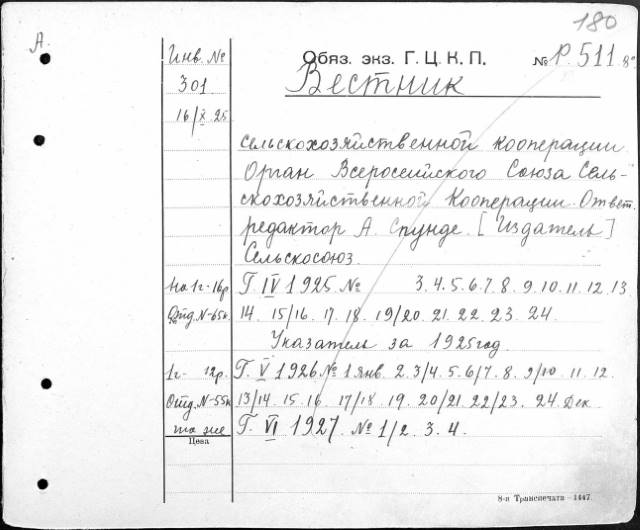 180
А.
Инв. №
Обяз. экз. Г. Ц. К. П.
№ Р. 511. 8°
301
Вестник
16/X 25
сельскохозяйственной кооперации.
Орган Всероссийского Союза Сель-
скохозяйственной Кооперации. Ответ.
редактор А. Спунде. [Издатель]
Сельскосоюз.
На 1г.-16р. Г. IV 1925. № 3.4.5.6.7.8.9.10.11.12.13
Отд. N-65к. 14. 15/16. 17. 18. 19/20. 21. 22. 23. 24.
Указатель за 1925 год.
1г. 12р. Г. V 1926 № 1 Янв. 2. 3/4. 5. 6/7. 8. 9/10. 11. 12.
Отд. N-55к 13/14. 15. 16. 17/18. 19. 20/21. 22/23. 24. Дек
та же Г. VI 1927. № 1/2. 3. 4.
Цена
8-я Транспечать—1447.